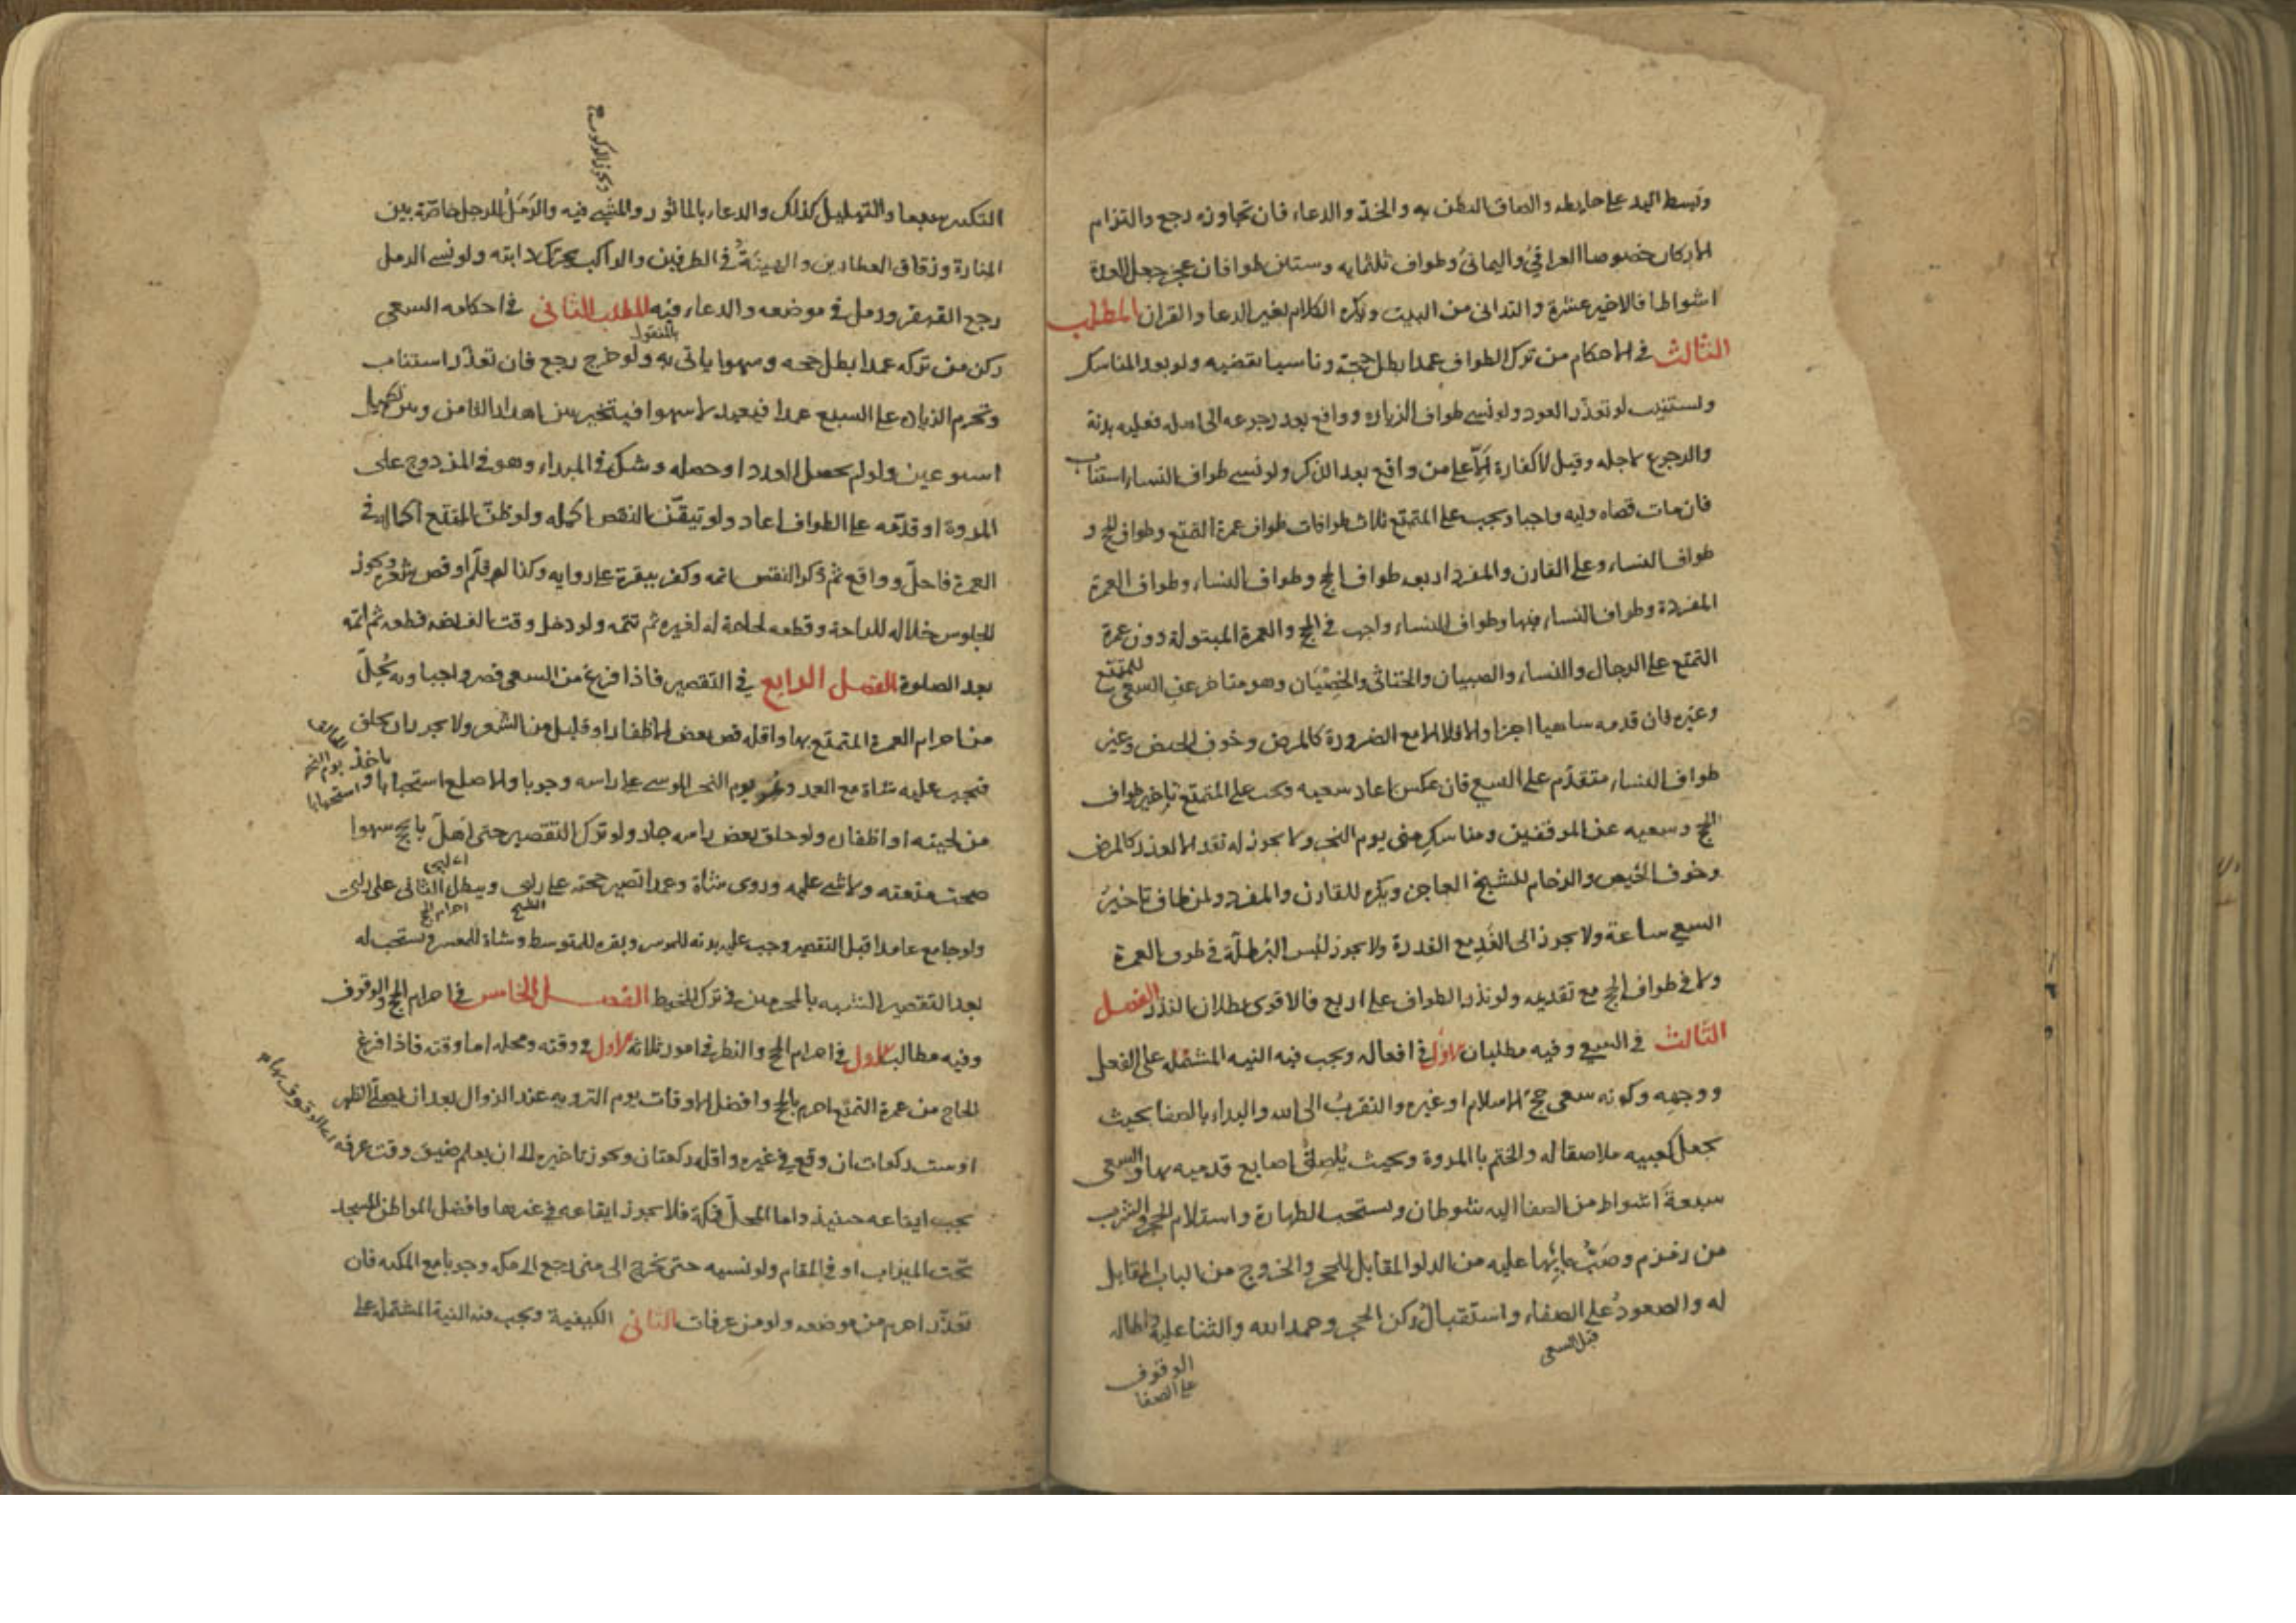 وتبسط اليد على حايطه والصاق البطن به والخدّ والدعاء فان تجاوزه رجع والتزام
الاركان خصوصا العراقيُ واليمانيُ وطواف ثلثمايه وستين طوافا فان عجز جعل العدة
اشواطا فالاخير عشرة والتدانى من البيت ويكره الكلام بغير الدعا والقران المطلب
الثالث في الاحكام من ترك الطواف عمدا بطل حجة وناسيا يقضيه ولو بعد المناسك
ويستنيب لو تعذّر العود ولو نسي طواف الزياره وواقع بعد رجوعه الى اهله فعليه بدنة
والرجوع لاجله وقيل لا كفارة الّا على من واقع بعد الذكر ولو نسي طواف النساء استناب
فان مات قضاه وليه واجبا ويجب على المتمتع ثلاث طوافات طواف عمرة التمتع وطواف الحج و
طواف النساء وعلى القارن والمفرد اربعه طواف الحج وطواف النساء وطواف العمرة
المفردة وطواف النساء فيها وطواف النساء واجب في الحج والعمرة المبتولة دون عمرة
التمتع على الرجال والنساء والصبيان والخناثى والخِصْيَان وهو متاخر عن السعي للمتمتع
وغيره فان قدمه ساهيا اجزا والا فلا الا مع الضرورة كالمرض وخوف الحيض وغير
طواف النساء متقدّم على السعي فان عكس اعاد سعيه ويجب على المتمتع تاخير طواف
الحج وسعيه عن الموقفين ومناسكِ منى يوم النحر ولا يجوز له تقد الا لعذر كالمرض
وخوف الحيض والزحام للشيخ العاجز ويكره للقارن والمفرد ولمن طاف تاخيرُ
السعي ساعة ولا يجوز الى الغَدِ مع القدرة ولا يجوز لبس البُرطلّة في طوف العمرة
ولا في طواف الحج مع تقديمه ولو نذر الطواف على اربع فالاقوى بطلان النذر الفصل
الثالث في السعي وفيه مطلبان الاول في افعاله ويجب فيه النيه المشتمله على الفعل
ووجهِه وكونه سعى حج الاسلام او غيره والتقربُ الى الله والبداء بالصفا بحيث
يجعل كعبيه ملاصقا له والختم با المروة وبحيث يُلصِقُ اصابع قدميه بها والسعى
سبعةَ اشواط من الصفا اليه شوطان ويستحب الطهارة واستلام الحجر والشرب
من زمزم وصَبُّ مائِها عليه من الدلو المقابل للحجر والخروج من الباب المقابل
له والصعودُ على الصفاء واستقبالُ ركن الحجر وحمد الله والثنا عليه واطاله
قبل السعى
الوقوف
على الصفا
التكبير سبعا والتهليل كذلك والدعاء بالماثور والمشي فيه والرَمَلُ للرجل خاصّة بين
المنارة وزقاق العطارين والهينَةُ في الطرفين والراكب يحرك دابته ولو نسي الرمل
رجع القهقرى ورمل في موضعه والدعاء فيه المطلب الثانى في احكامه السعى
ركن من تركه عمدا بطل حجه وسهوا ياتى به ولو خرج رجع فان تعذّر استناب
وتحرم الزيادة على السبع عمدا فيعيد لا سهوا فيتخير بين اهدار الثامن وبين تكميل
اسبوعين ولو لم يحصل العدد او حصله وشك في المبداء وهو في المزدوج على
المروة او قدّمه على الطواف اعاد ولو تيقّن النقص اكمله ولو ظنّ المتمتع اكماله في
العمرة فاحلّ وواقع ثم ذكر النقص اتمه وكفر ببقرة على روايه وكذا لو قلّم او قص شعره ويجوز
الجلوس خلاله للراحة وقطعه لحاجة له لغيره ثم تتمه ولو دخل وقت الفريضه قطعه ثم اتمه
بعد الصلوة الفصل الرابع في التقصير فاذا فرغ من السعى قصر واجبا وبه يُحِلّ
من احرام العمرة المتمتع بها واقله قص بعض الاظفار او قليل من الشعر ولا يجوز ان يحلق
فيجب عليه شاة مع العمد ويمر يوم النحر الموسى على راسه وجوبا والاصلع استحبابا وياخذ
من لحيته او اظفاره ولو حلق بعض راسه جاز ولو ترك التقصير حتى اهلّ با لحج سهوا
صحت متعته ولا شي عليه وروى شاة وعمدا تصير حجته على راى ويبطل الثانى على راى
احرام الحج
ولو جامع عامدا قبل التقصير وجب عليه بدنه للموسر وبقره للمتوسط وشاة للمعسر ويستحب له
بعد التقصير التشبه بالمحرمين في ترك المخيط الفصل الخامس في احرام الحج والوقوف
وفيه مطالب الاول في احرام الحج والنظر في امور ثلاثه الاول في وقته ومحله اما وقته فاذا فرغ
الحاج من عمرة التمتع احرم بالحج وافضل الاوقات يوم الترويه عند الزوال بعد ان يصلّى الظهر
او ست ركعات ان وقع في غيره واقله ركعتان ويجوز تاخيره الى ان يعلم ضيق وقت عرفه
يجب ايقاعه حينيذ واما المحلّ فمكة فلا يجوز ايقاعه في غيرها وافضل المواطن المسجد
تحت الميزاب او في المقام ولو نسيه حتى يخرج الى منى رجع الى مكه وجوبا مع المكنه فان
تعذّر احرم من موضعه ولو من عرفات الثانى الكيفية ويجب فيه النية المشتمله على